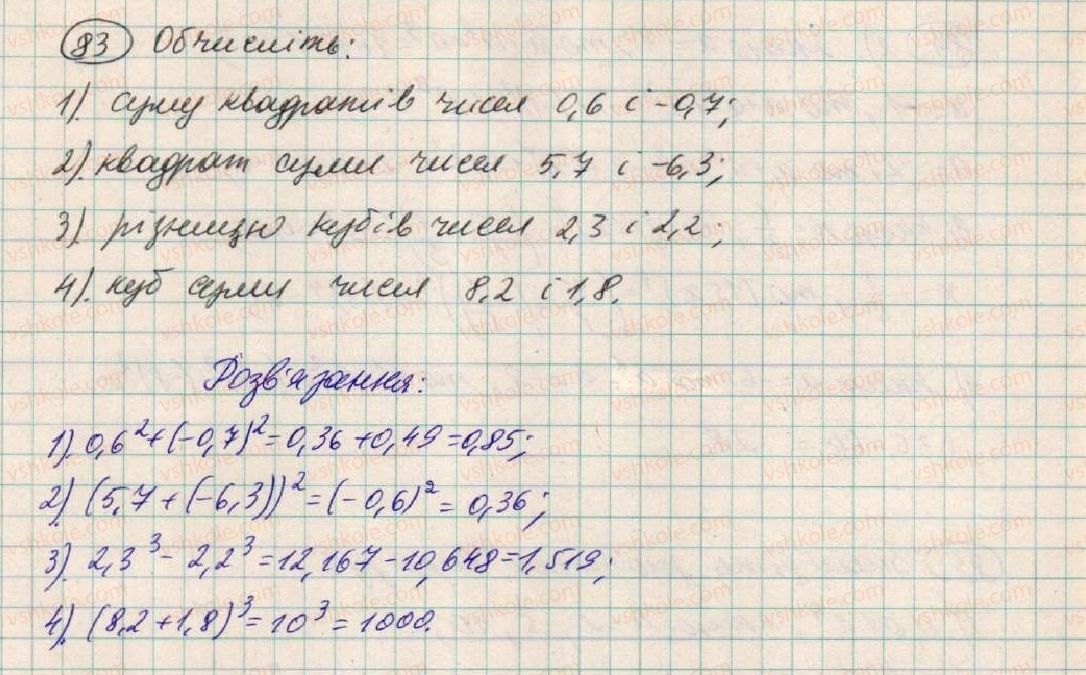 83 Обчисліть:
1). суму квадратів чисел 0,6 і -0,7;
2). квадрат суми чисел 5,7 і -6,3;
3). різницю кубів чисел 2,3 і 2,2;
4). куб суми чисел 8,2 і 1,8.
Розв'язання:
1). 0,6²+(-0,7)²=0,36+0,49=0,85;
2) (5,7+(-6,3))²=(-0,6)²=0,36;
3). 2,3³-2,2³=12,167-10,648=1,519;
4). (8,2+1,8)³=10³=1000.
vshkole.com